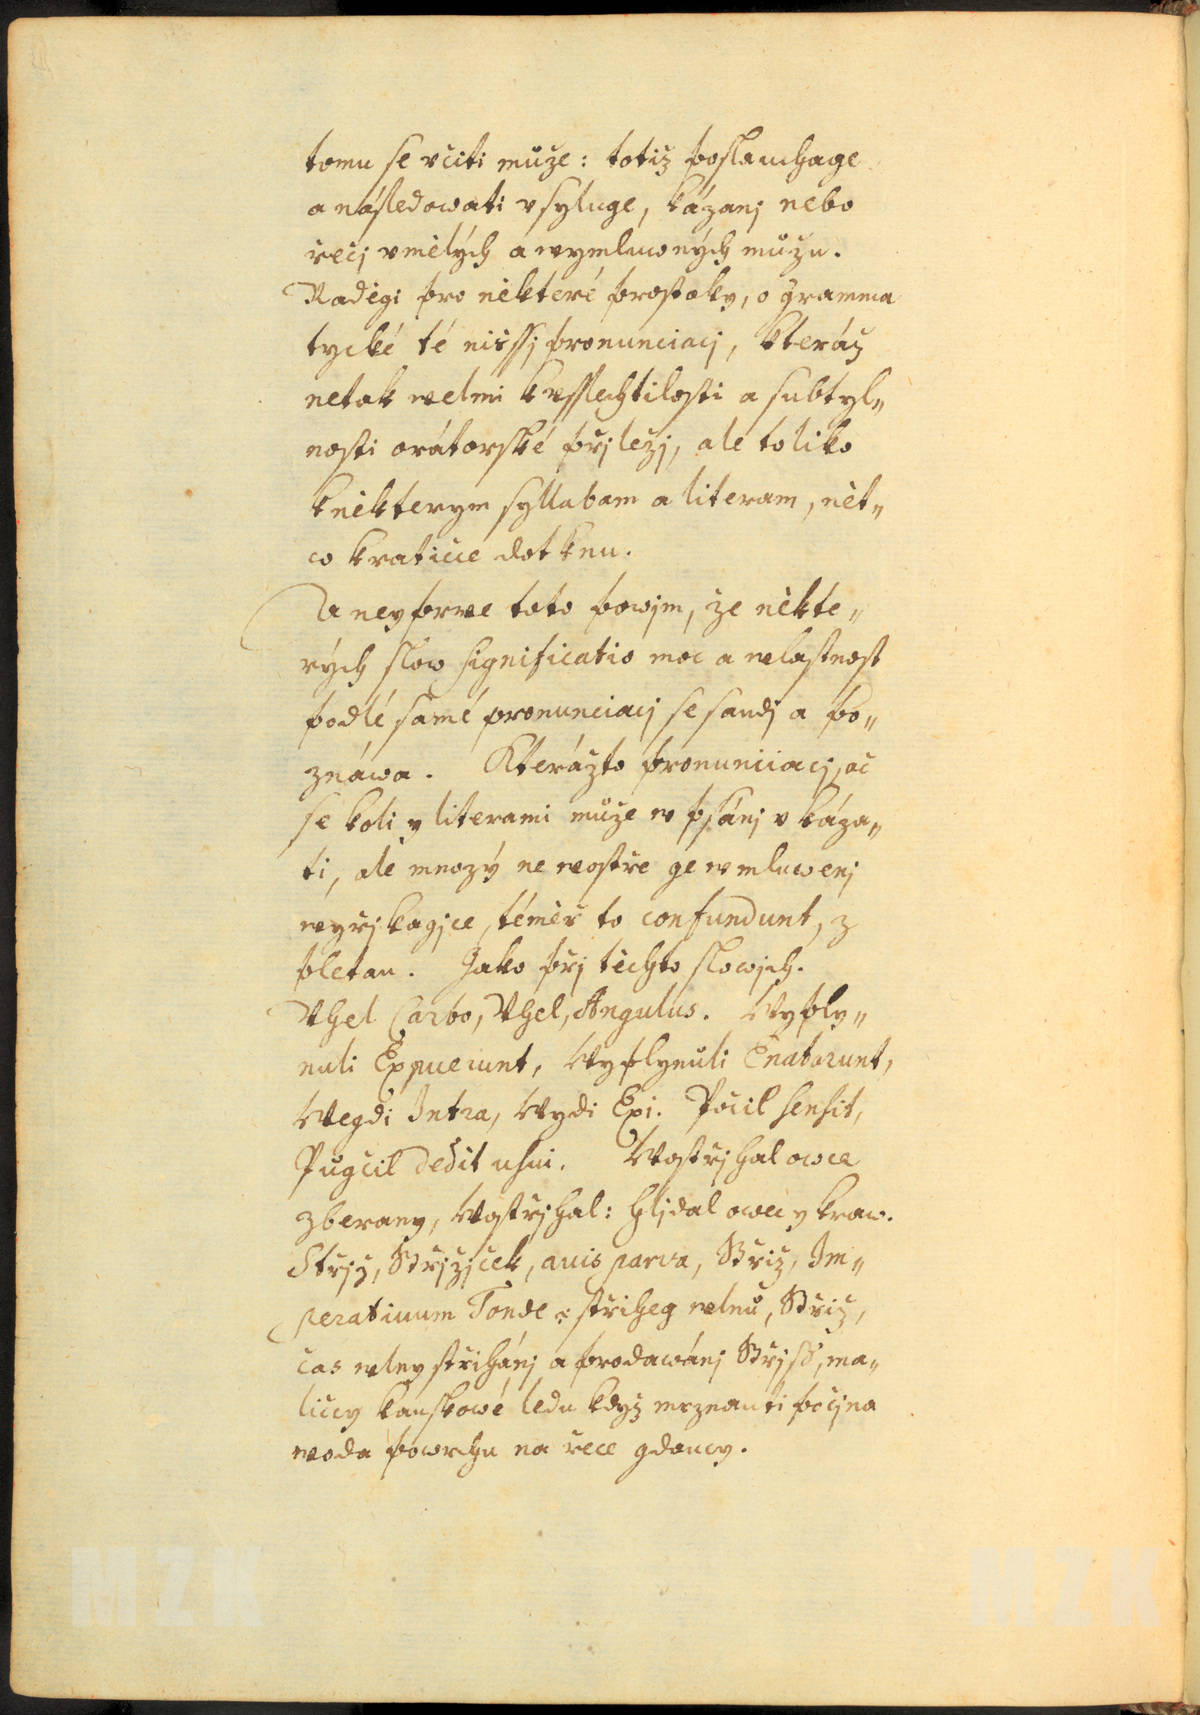 tomu se vciti může: totiž poslauchage
a následowati vsyluge, kázanj nebo
řečj vmělých a wymluwných mužu.
Raděgi pro některé prostáky, o gramma
tycké té nižssj pronunciacj, kteráž
netak welmi k vsslechtilosti a subtyl„
nosti orátorské přjležj, ale toliko
k některym syllabam a literam, nět„
co kratičce dotknu.
A neyprwe toto powjm, že někte„
rých slow significatio moc a wlastnost
podlé samé pronunciacj se saudj a po„
znáwa. Kterážto pronunciacj, ač
se koli y literami může w psánj vkáza„
ti, ale mnozý ne wostře ge w mluwenj
wyřjkagjce, téměř to confundunt, z
pletau. Jako při těchto slowjch.
Vhel Carbo, Vhel, Angulus. Wyply„
nuli Expuerunt, Wyplynuli Enatarunt,
Wegdi Intra, Wydi Exi. Počil sensit,
Pugčil dedit usui. Wostřjhal owce
zberany, Wostřjhal: hljdal owec y kraw.
Střjž, Střjžjček, auis parva, Střiž, Im„
perativum Tonde: střiheg wlnu, Střiž,
čas wlny střihánj a prodawánj Střjšť, ma„
ličcy kauskowé ledu když mrznauti počjna
woda powrchu na řece gdaucy.
MZK
MZK